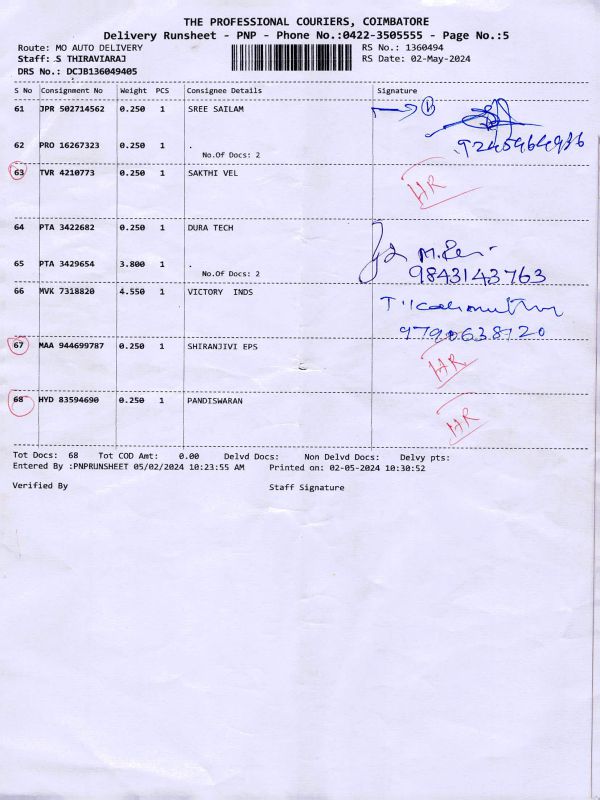 THE PROFESSIONAL COURIERS, COIMBATORE
Delivery Runsheet - PNP - Phone No.:0422-3505555 - Page No.:5
Route: MO AUTO DELIVERY RS No.: 1360494
Staff: S THIRAVIARAJ RS Date: 02-May-2024
DRS No.: DCJB136049405
S No Consignment No Weight PCS Consignee Details Signature
61 JPR 502714562 0.250 1 SREE SAILAM
62 PRO 16267323 0.250 1 .
No.Of Docs: 2
63 TVR 4210773 0.250 1 SAKTHI VEL HR
64 PTA 3422682 0.250 1 DURA TECH
65 PTA 3429654 3.800 1 . 9843143763
No.Of Docs: 2
66 MVK 7318820 4.550 1 VICTORY INDS
9790638720
67 MAA 944699787 0.250 1 SHIRANJIVI EPS HR
68 HYD 83594690 0.250 1 PANDISWARAN HR
Tot Docs: 68 Tot COD Amt: 0.00 Delvd Docs: Non Delvd Docs: Delvy pts:
Entered By :PNPRUNSHEET 05/02/2024 10:23:55 AM Printed on: 02-05-2024 10:30:52
Verified By Staff Signature